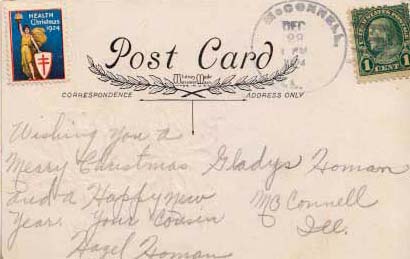 HEALTH
Christmas
1924
Post Card
McCONNELL,
DEC
1 CENT 1
CORRESPONDENCE
ADDRESS ONLY
Wishing you a
Merry Christmas
and a Happy New
Year. Your Cousin
Hazel Homan
Gladys Homan
McConnell
Ill.